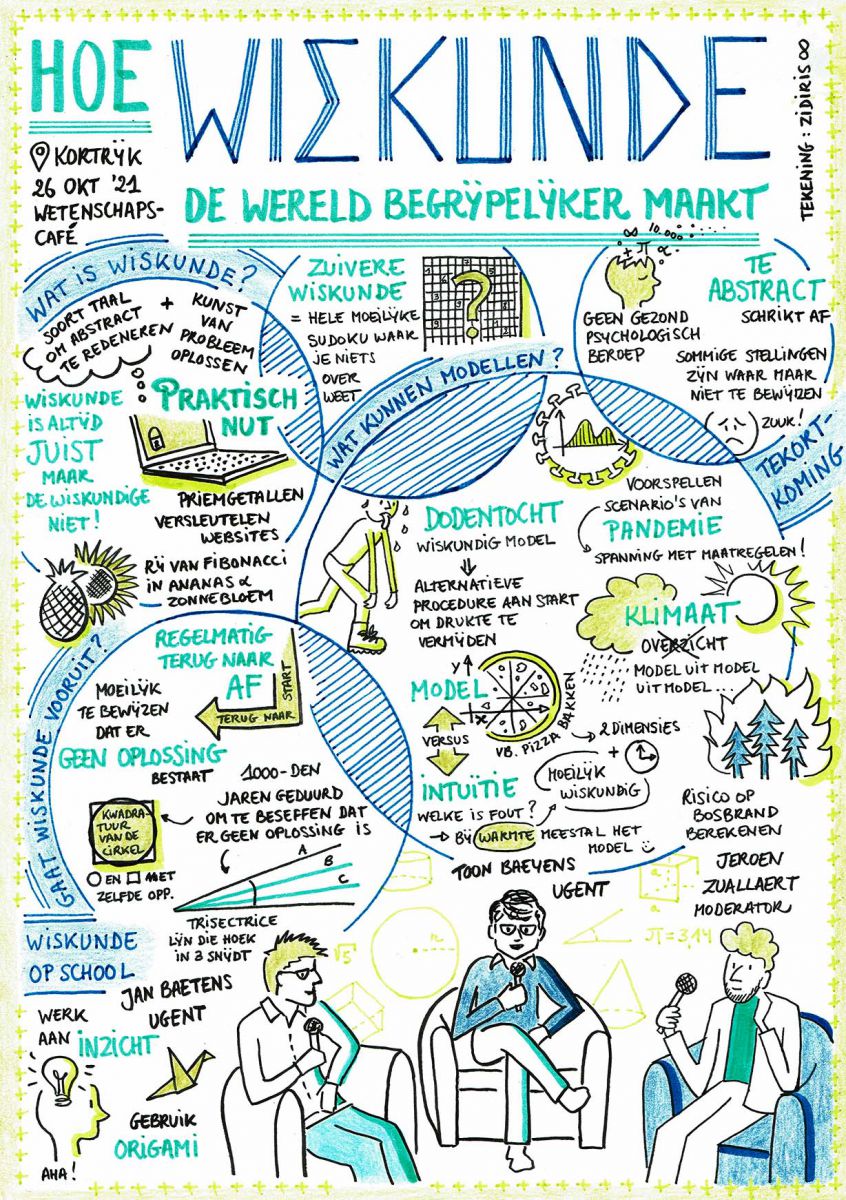 HOE WISKUNDE
DE WERELD BEGRIJPELIJKER MAAKT
KORTRIJK
26 OKT '21
WETENSCHAPS-
CAFÉ
TEKENING: ZIDIRIS ∞
WAT IS WISKUNDE?
SOORT TAAL
OM ABSTRACT
TE REDENEREN
+
KUNST
VAN
PROBLEEM
OPLOSSEN
WISKUNDE
IS ALTIJD
JUIST
MAAR
DE WISKUNDIGE
NIET!
PRAKTISCH
NUT
PRIEMGETALLEN
VERSLEUTELEN
WEBSITES
RIJ VAN FIBONACCI
IN ANANAS &
ZONNEBLOEM
ZUIVERE
WISKUNDE
= HELE MOEILIJKE
SUDOKU WAAR
JE NIETS
OVER
WEET
?
∞ 10.000
+ π α
TE
ABSTRACT
SCHRIKT AF
GEEN GEZOND
PSYCHOLOGISCH
BEROEP
SOMMIGE STELLINGEN
ZIJN WAAR MAAR
NIET TE BEWIJZEN
ZUUK!
TEKORT-
KOMING
WAT KUNNEN MODELLEN?
DODENTOCHT
WISKUNDIG MODEL
ALTERNATIEVE
PROCEDURE AAN START
OM DRUKTE TE
VERMIJDEN
VOORSPELLEN
SCENARIO'S VAN
PANDEMIE
SPANNING MET MAATREGELEN!
KLIMAAT
OVERZICHT
MODEL UIT MODEL
UIT MODEL...
RISICO OP
BOSBRAND
BEREKENEN
MODEL
VERSUS
INTUÏTIE
y
x
VB. PIZZA BAKKEN
2 DIMENSIES
+
MOEILIJK
WISKUNDIG
WELKE IS FOUT?
BIJ WARMTE MEESTAL HET
MODEL
GAAT WISKUNDE VOORUIT?
REGELMATIG
TERUG NAAR
AF
START
TERUG NAAR
MOEILIJK
TE BEWIJZEN
DAT ER
GEEN OPLOSSING
BESTAAT
1000-DEN
JAREN GEDUURD
OM TE BESEFFEN DAT
ER GEEN OPLOSSING IS
KWADRA-
TUUR
VAN DE
CIRKEL
EN MET
ZELFDE OPP.
A
B
C
TRISECTRICE
LIJN DIE HOEK
IN 3 SNIJDT
WISKUNDE
OP SCHOOL
WERK
AAN
INZICHT
AHA!
GEBRUIK
ORIGAMI
JAN BAETENS
UGENT
TOON BAEYENS
UGENT
JEROEN
ZUALLAERT
MODERATOR
√5
r
a
a
π=3,14